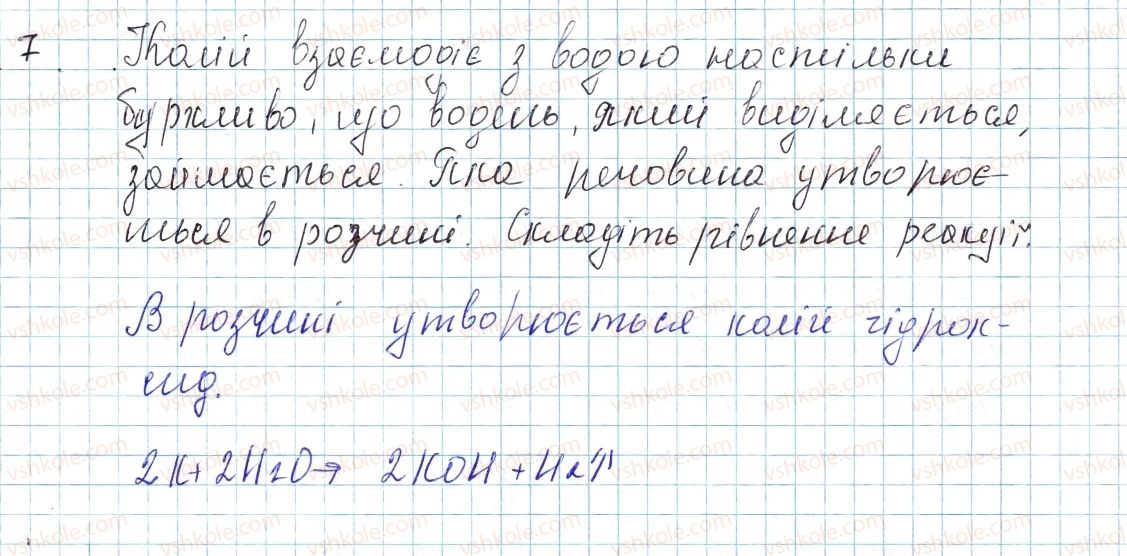 7. Калій взаємодіє з водою настільки
бурхливо, що водень, який виділяється,
займається. Яка речовина утворює-
ться в розчині. Складіть рівняння реакції.
В розчині утворюється калій гідрок-
сид.
2K+2H2O→ 2KOH+H2↑
vshkole.com